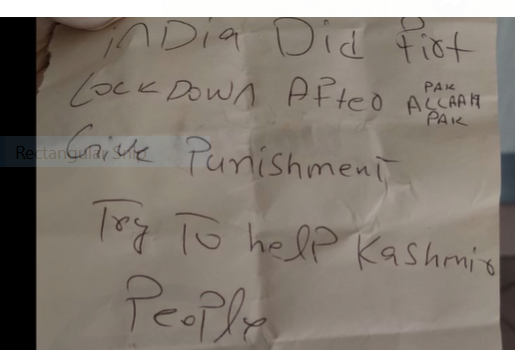 INDIA DiD First
LOCKDOWN AFter PAK ALLAAH PAK
Give Punishment
Try To help Kashmir
PeoPle
Rectangular Snip